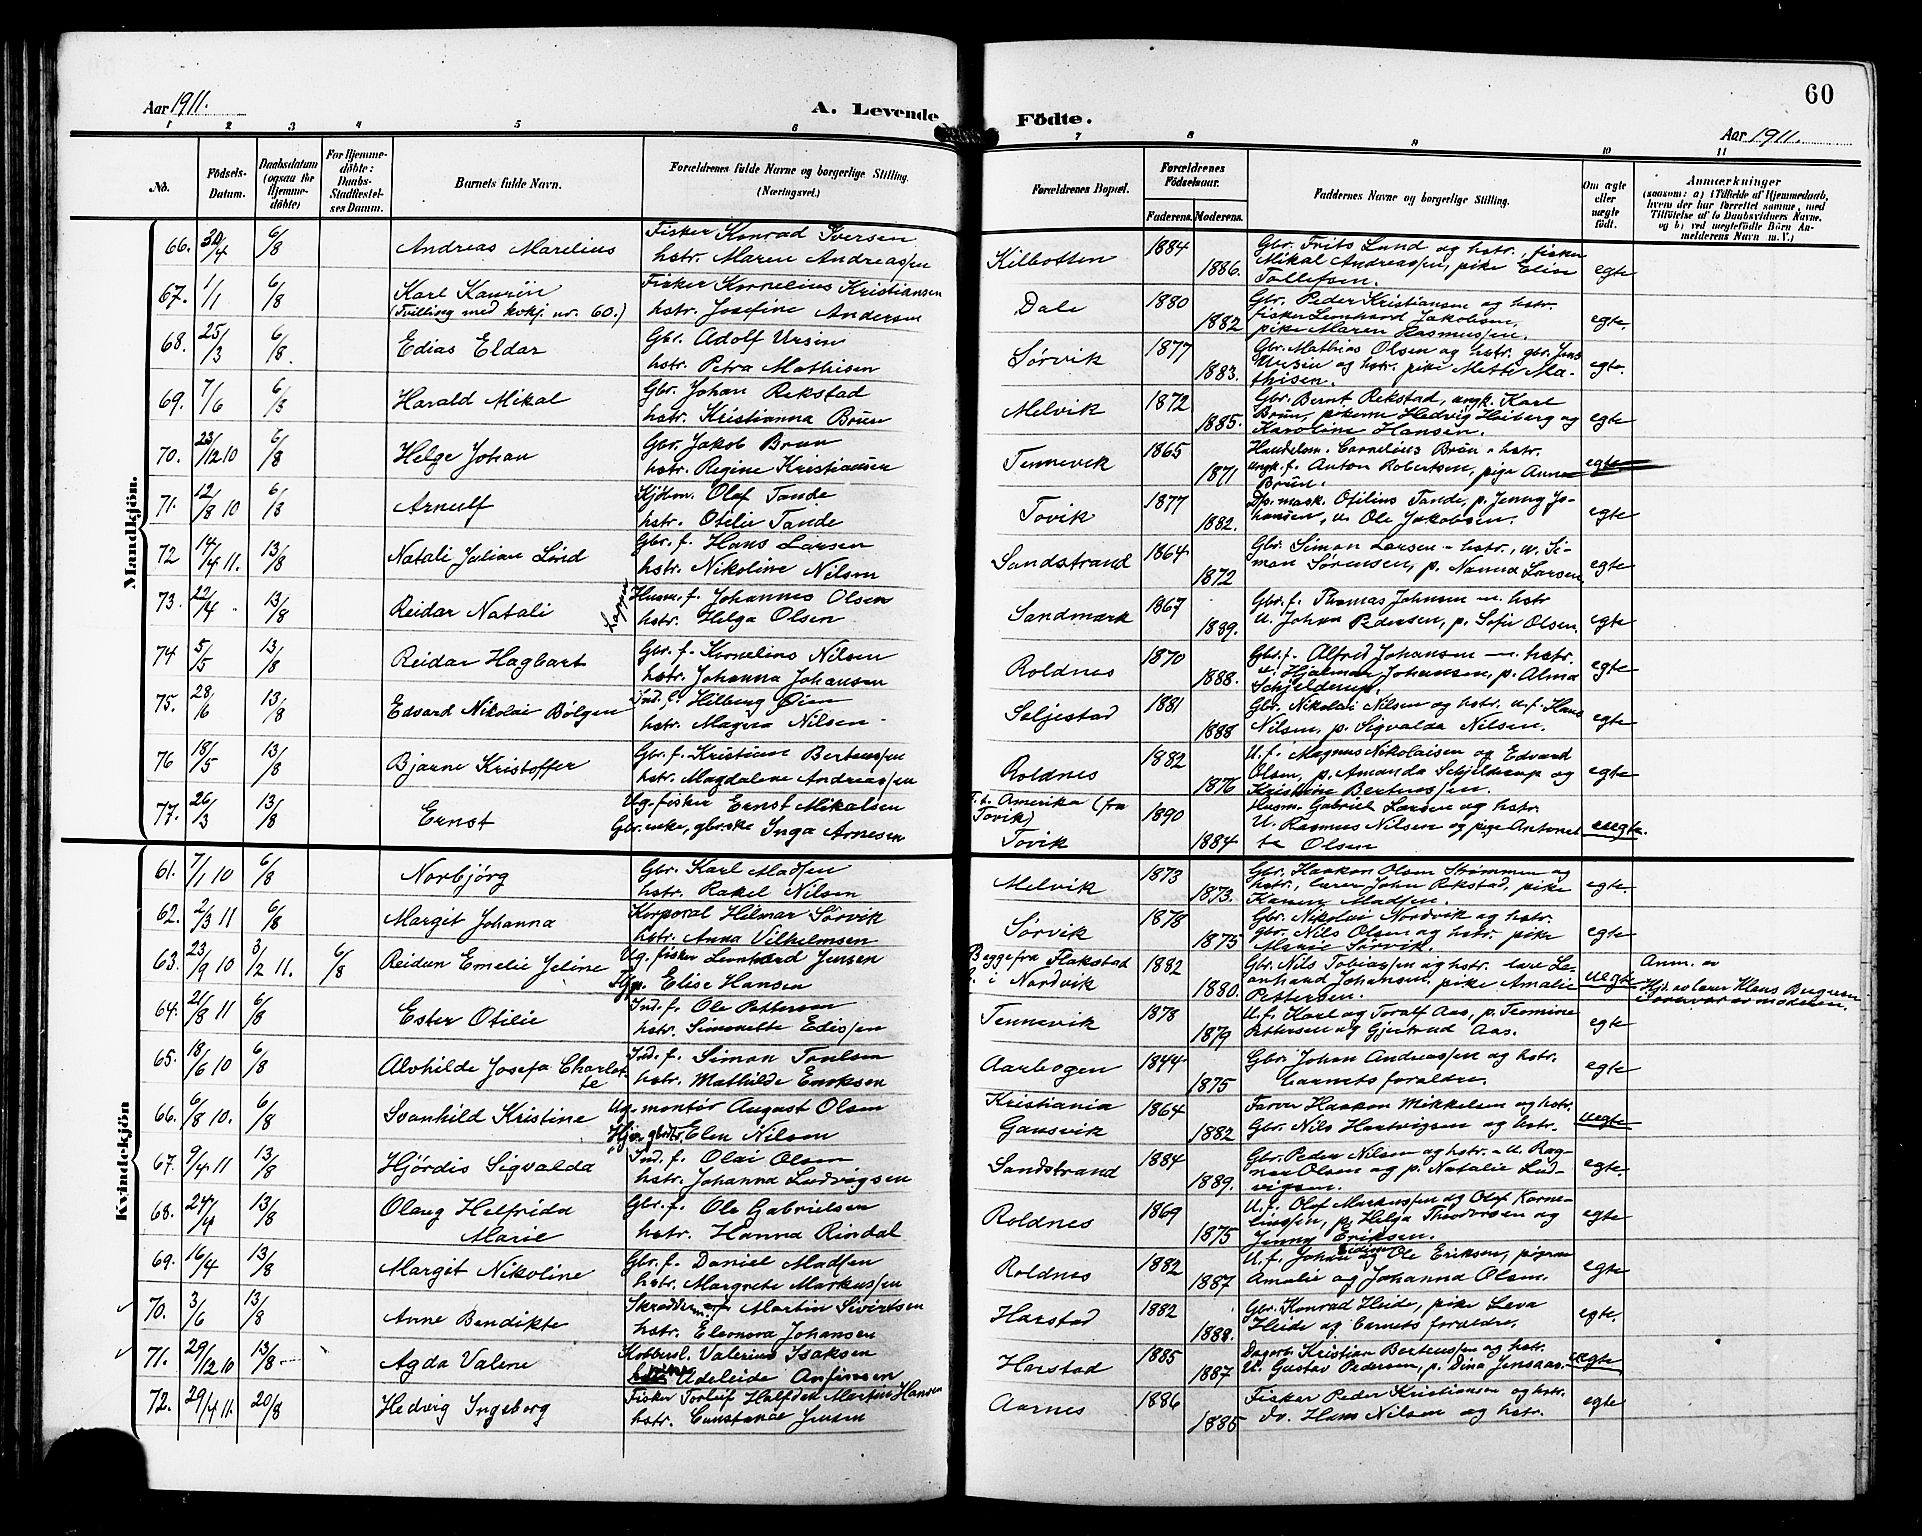 60
Aar 1911.
A. Levende
Födte.
Aar 1911.
1 2 3 4 5 6 7 8 9 10 11
No.
Födsels-Datum.
Daabsdatum (ogsaa for Hjemme-döbte)
For Hjemme-döbte: Daabs-Stadfæstel-ses Datum.
Barnets fulde Navn.
Forældrenes fulde Navne og borgerlige Stilling. (Næringsvei.)
Forældrenes Bopæl.
Forældrenes Födselsaar.
Faderens. Moderens.
Faddernes Navne og borgerlige Stilling.
Om ægte eller uægte födt.
Anmærkninger
(saasom: a) i Tilfælde af Hjemmedaab, hvem der har forrettet samme, med Tilföielse af to Daabsvidners Navne, og b) ved uægtefödte Börn An-melderens Navn m. V.)
Mandkjön.
66. 30/4 6/8 Andreas Marelius
Fisker Konrad Iversen
hstr. Maren Andreassen
Kilbotten 1884 1886.
Gbr. Frits Lund og hstr., fisker
Mikal Andreassen, pike Elise
Tollefsen. egte
67. 1/1 6/8 Karl Kaurin
(Tvilling med kvkj. nr. 60.)
Fisker Kornelius Kristiansen
hstr. Josefine Andersen
Dale 1880 1882
Gbr. Peder Kristiansen og hstr.
fisker Leonhard Jakobsen,
pike Maren Rasmussen. egte.
68. 25/3 6/8. Edias Eldar
Gbr. Adolf Ursin
hstr. Petra Mathisen
Sørvik 1877 1883.
Gbr. Mathias Olsen og hstr. gbr. Jens
Ursin og hstr. pike Mette Ma-
thisen. egte.
69. 7/6 6/8 Harald Mikal
Gbr. Johan Rekstad
hstr. Kristianna Brun
Melvik 1872 1885.
Gbr. Bernt Rekstad, ungk. Karl
Brun, pikerne Hedvig Heiberg og
Karoline Hansen. egte
70. 23/12 10 6/8 Helge Johan
Gbr. Jakob Brun
hstr. Regine Kristiansen
Tennevik 1865 1871
Handelsm. Cornelius Brun - hstr.
ungk. f. Anton Robertsen, pige Anna
Brun. egte
71. 12/8 10 6/8 Arnulf
Kjøbm. Olaf Tande
hstr. Otilie Tande
Tovik 1877 1882.
Dps. mask. Ofilius Tande, p. Jenny Jo-
hansen, u. Ole Jakobsen. egte
72 14/4 11. 13/8 Natali Julian Lörid
Gbr. f. Hans Larsen
hstr. Nikoline Nilsen
Sandstrand 1864 1872
Gbr. Simon Larsen - hstr., u. Si-
mon Sørensen, p. Nanna Larsen egte
73. 22/4 13/8 Reidar Natali
Husm. f. Johannes Olsen
hstr. Helga Olsen
Sandmark 1867 1889.
Gbr. f. Thomas Johnsen - hstr
u. Johan Pedersen, p. Sofie Olsen. egte
74 5/5 13/8 Reidar Hagbart
Gbr. f. Kornelius Nilsen
hstr. Johanna Johansen
Roldnes 1870 1888.
Gbr. f. Alfred Johansen - hstr.
u. Hjalmar Johansen, p. Alma
Schjelderup. egte
75. 28/6 13/8 Edvard Nikolai Bölgen
Ind. f. Hilberg Øien
hstr. Magna Nilsen
Seljestad 1881 1888
Gbr. Nikolai Nilsen og hstr. u. f. Hans
Nilsen, p. Sigvalda Nilsen. egte
76 18/5 13/8 Bjarne Kristoffer
Gbr. f. Kristian Berteussen
hstr. Magdalene Andreassen
Roldnes 1882 1876
U. f. Magnus Nikolaisen og Edvard
Olsen, p. Amanda Schjelderup og
Kristine Berteussen. egte
77. 26/3 13/8 Ernst
Ug. fisker Ernst Mikalsen
Gbr. enke, gbr.ske Inga Arnesen
F. t. Amerika (fra
Tovik)
Tovik 1890 1884
Husm. Gabriel Larsen og hstr.
U. Rasmus Nilsen og pige Antonet
te Olsen uegte.
Kvindekjön
61. 7/1 10 6/8 Norbjörg
Gbr. Karl Madsen
hstr. Rakel Nilsen
Melvik 1873 1873.
Gbr. Haakon Olsen Strømmen og
hstr., lærer John Rekstad, pike
Karen Madsen. egte.
62. 2/3 11 6/8 Margit Johanna
Korporal Hilmar Sørvik
hstr. Anna Vilhelmsen
Sørvik 1878 1875
Gbr. Nikolai Nordvik og hstr.
gbr. Nils Olsen og hstr. pike
Marie Sørvik. egte
63. 23/9 10 3/12 11. 6/8 Reidun Emelie Jeline
Ug. fisker Leonhard Jensen
Elise Hansen
Begge fra Flakstad
i Nordvik 1882 1880.
Gbr. Nils Tobiassen og hstr. lære Le-
onhard Johansen, pike Amalie
Pettersen. uegte
Anm. av
Hjd. av lærer Klaus Bergesen
64. 21/8 11 6/8 Ester Otilie
Ind. f. Ole Pettersen
hstr. Simonette Edissen
Tennevik 1878 1879
U. f. Karl og Toralf Aas, p. Fermine
Pettersen og Gjertrud Aas. egte
65. 18/6 10 6/8 Alvhilde Josefa Charlot-
te
Ind. f. Simon Paulsen
hstr. Mathilde Eriksen
Aarbogen 1844 1875
Gbr. Johan Andreassen og hstr.
barnets foraldre. egte
66. 6/8 10. 6/8 Svanhild Kristine
Ug. montør August Olsen
Elen Nilsen
Kristiania
Gausvik 1864 1882
Farver Haakon Mikkelsen og hstr.
Gbr. Nils Hartvigsen og hstr. uegte
67. 9/4 11 13/8 Hjördis Sigvalda
Ind. f. Olai Olsen
hstr. Johanna Ludvigsen
Sandstrand 1884 1889.
Gbr. Peder Nilsen og hstr. - u. Rag-
nar Olsen og p. Natalie Lud-
vigsen. egte.
68. 24/4 13/8 Olaug Helfrida
Marie
Gbr. f. Ole Gabrielsen
hstr. Hanna Rindal
Roldnes 1869 1875
U. f. Olaf Markussen og Olef Korne-
liussen, p. Helga Theodorsen og
Jenny Eriksen. egte
69. 16/4 13/8 Margit Nikoline
Gbr. f. Daniel Madsen
hstr. Margrete Markussen
Roldnes 1882 1887
U. f. Johan og Ole Eriksen, pigerne
Amalie og Johanna Olsen. egte
70. 3/6 13/8 Anne Bendikte
Skrædderm. Martin Sivertsen
hstr. Eleonora Johansen
Harstad 1882 1888.
Gbr. Konrad Heide, pike Leva
Heide og barnets foraldre. egte.
71. 29/12 10 13/8 Agda Valene
Kobbersl. Valerius Isaksen
Udeleide Anfinsen
Harstad 1885 1887
Dagarb. Kristian Berteussen og hstr.
U. Gustav Pedersen, p. Dina Jensaas. uegte
72. 29/4 11. 20/8 Hedvig Ingeborg
Fisker Torleif Halfdan Martin Hansen
hstr. Constance Jensen
Aarnes 1886 1885
Fisker Peder Kristiansen og hstr.
do. Hans Nilsen og hstr. egte